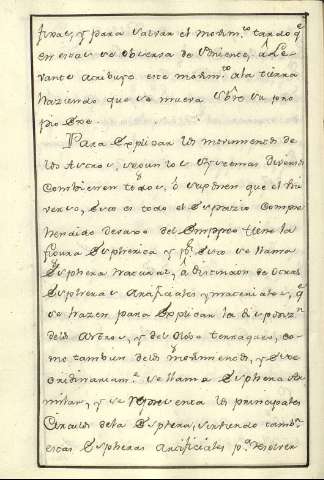 fixas, y para salvar el movim.to tardo q.e
en estas se observa de Poniente, â Le
vante atribuye este movim.to a la tierra
haziendo que se mueva sobre su pro
pio Exe.
Para Explicar los movimientos de
los Astros, segun los Systemas diversos
Combienen todos, ô suponen que el Uni
verso, esto es todo el Espazio Compre
hendido devajo del Empyreo tiene la
figura Espherica y p.r esto se llama
Esphera natural, â distincion de otras
Espheras Artificiales y materiales, q.e
se hazen para Explicar la disposiz.n
delos Astros, y del Globo terraqueo, co-
mo tambien delos movimientos, y esta
ordinariam.te se llama Esphera Ar
milar, y se representa los principales
Circulos dela Esphera, sirviendo tamb.n
estas Espheras Artificiales p.a resolver